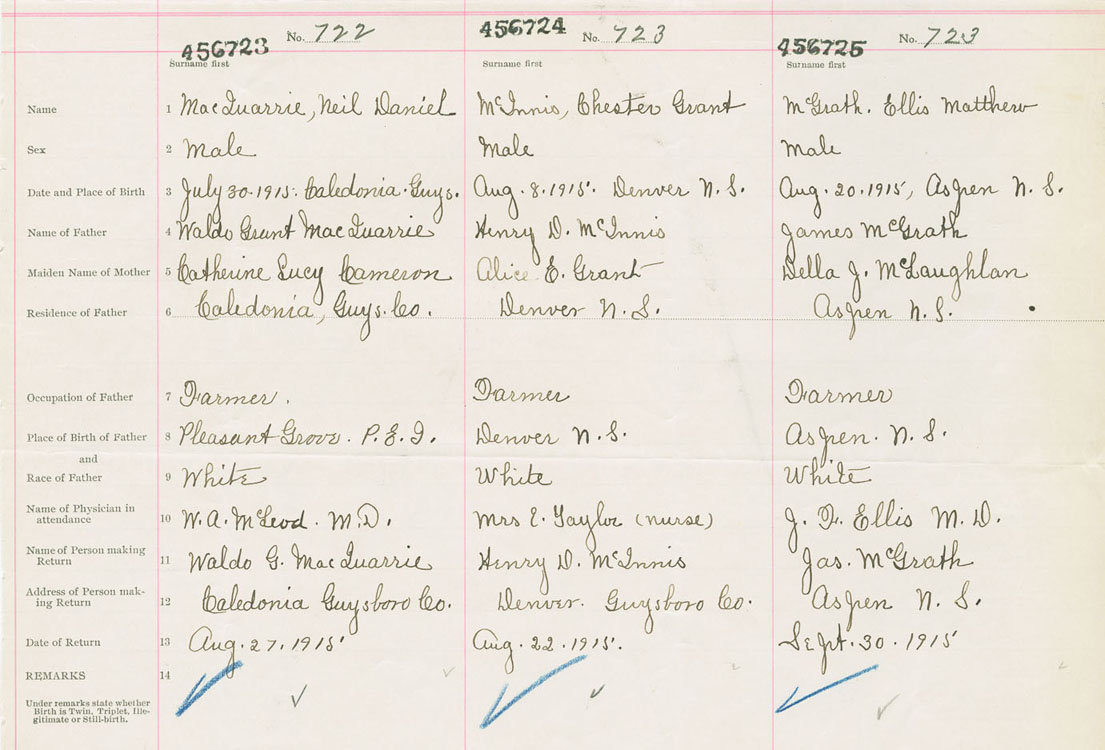 456723 No. 722 456724 No. 723 456725 No. 723
Surname first Surname first Surname first
Name 1 MacQuarrie, Neil Daniel McInnis, Chester Grant McGrath. Ellis Matthew
Sex 2 Male Male Male
Date and Place of Birth 3 July 30.1915. Caledonia. Guys. Aug. 8.1915. Denver N.S. Aug. 20.1915, Aspen N.S.
Name of Father 4 Waldo Grant MacQuarrie Henry D. McInnis James McGrath
Maiden Name of Mother 5 Catherine Lucy Cameron Alice E. Grant Della J. McLaughlan
Residence of Father 6 Caledonia, Guys. Co. Denver N.S. Aspen N.S.
Occupation of Father 7 Farmer. Farmer Farmer
Place of Birth of Father 8 Pleasant Grove. P.E.I. Denver N.S. Aspen. N.S.
and
Race of Father 9 White White White
Name of Physician in
attendance 10 W.A. McLeod. M.D. Mrs E. Taylor (nurse) J. F. Ellis M.D.
Name of Person making
Return 11 Waldo G. MacQuarrie Henry D. McInnis Jas. McGrath
Address of Person mak-
ing Return 12 Caledonia Guysboro Co. Denver. Guysboro Co. Aspen N.S.
Date of Return 13 Aug. 27.1915 Aug. 22.1915. Sept. 30.1915
REMARKS 14
Under remarks state whether
Birth is Twin, Triplet, Ille-
gitimate or Still-birth.